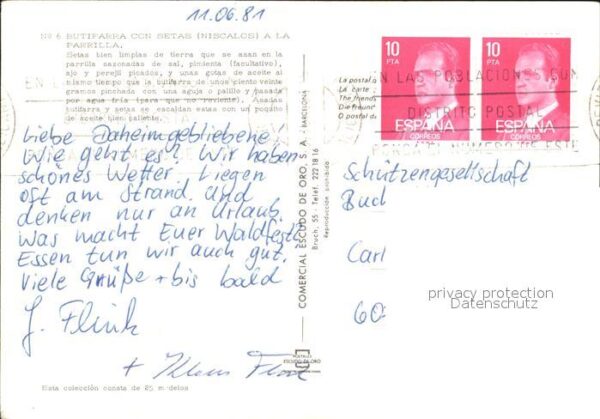 11.06.81
No 6 BUTIFARRA CON SETAS (NISCALOS) A LA
PARRILLA.
Setas bien limpias de tierra que se asan en la
parrilla sazonadas de sal, pimienta (facultativo),
ajo y perejil picados, y unas gotas de aceite al
mismo tiempo que la butifarra de unos ciento veinte
gramos pinchada con una aguja o palillo y pasada
por agua fría (para que no reviente). Asadas
butifarra y setas se escaldan estas con un poquito
de aceite bien caliente.
Liebe Daheimgebliebene!
Wie geht es? Wir haben
schönes Wetter. Liegen
oft am Strand und
denken nur an Urlaub.
Was macht Euer Waldfest?
Essen tun wir auch gut.
Viele Grüße + bis bald
J. Flink
+ Klaus
Esta colección consta de 85 modelos
COMERCIAL ESCUDO DE ORO, S. A. - BARCELONA
Bruch, 55 - Teléf. 222 18 16
Reproducción prohibida
POSTALES
ESCUDO DE ORO
La postal
La carte
The friend
Die freun
O postal
10
PTA
ESPAÑA
CORREOS
10
PTA
ESPAÑA
CORREOS
EN LAS POBLACIONES CON
DISTRITO POSTAL
PONGA EL NUMERO DE ESTE
Schützengesellschaft
Carl
60
privacy protection
Datenschutz